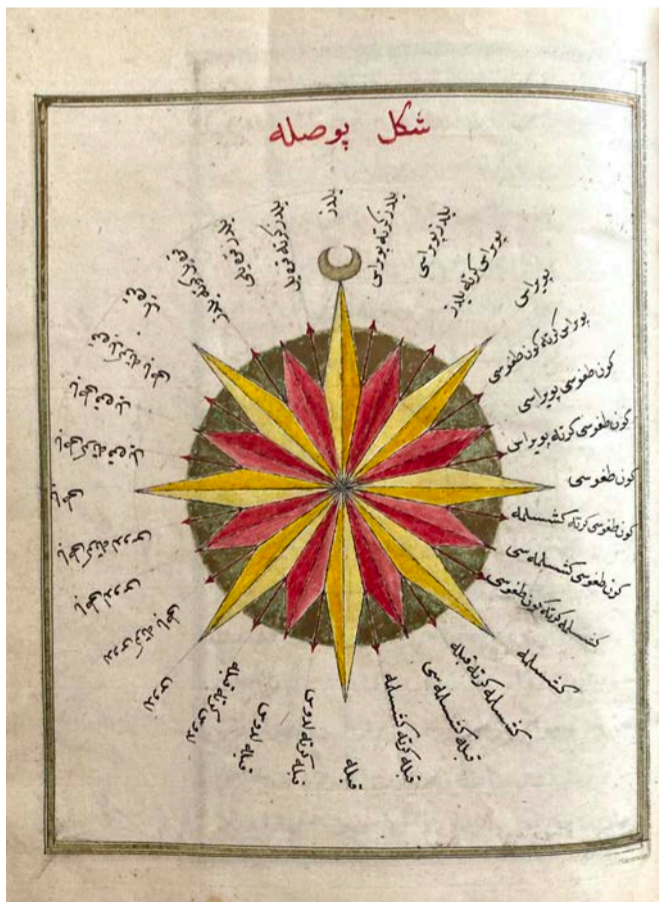 شكل پوصله
يلدز
يلدز كرته پويراس
يلدز پويراسى
پويراس كرته يلدز
پويراس
پويراس كرته كون طغوسى
كون طغوسى پويراسى
كون طغوسى كرته پويراس
كون طغوسى
كون طغوسى كرته كشسلمه
كون طغوسى كشسلمه سى
كشسلمه كرته كون طغوسى
كشسلمه
كشسلمه كرته قبله
قبله كشسلمه سى
قبله كرته كشسلمه
قبله
قبله كرته لدوس
قبله لدوس
لدوس كرته قبله
لدوس
لدوس كرته باطى
باطى لدوس
باطى كرته لدوس
باطى
باطى كرته قره يل
باطى قره يل
قره يل كرته باطى
قره يل
قره يل كرته يلدز
يلدز قره يلى
يلدز كرته قره يل